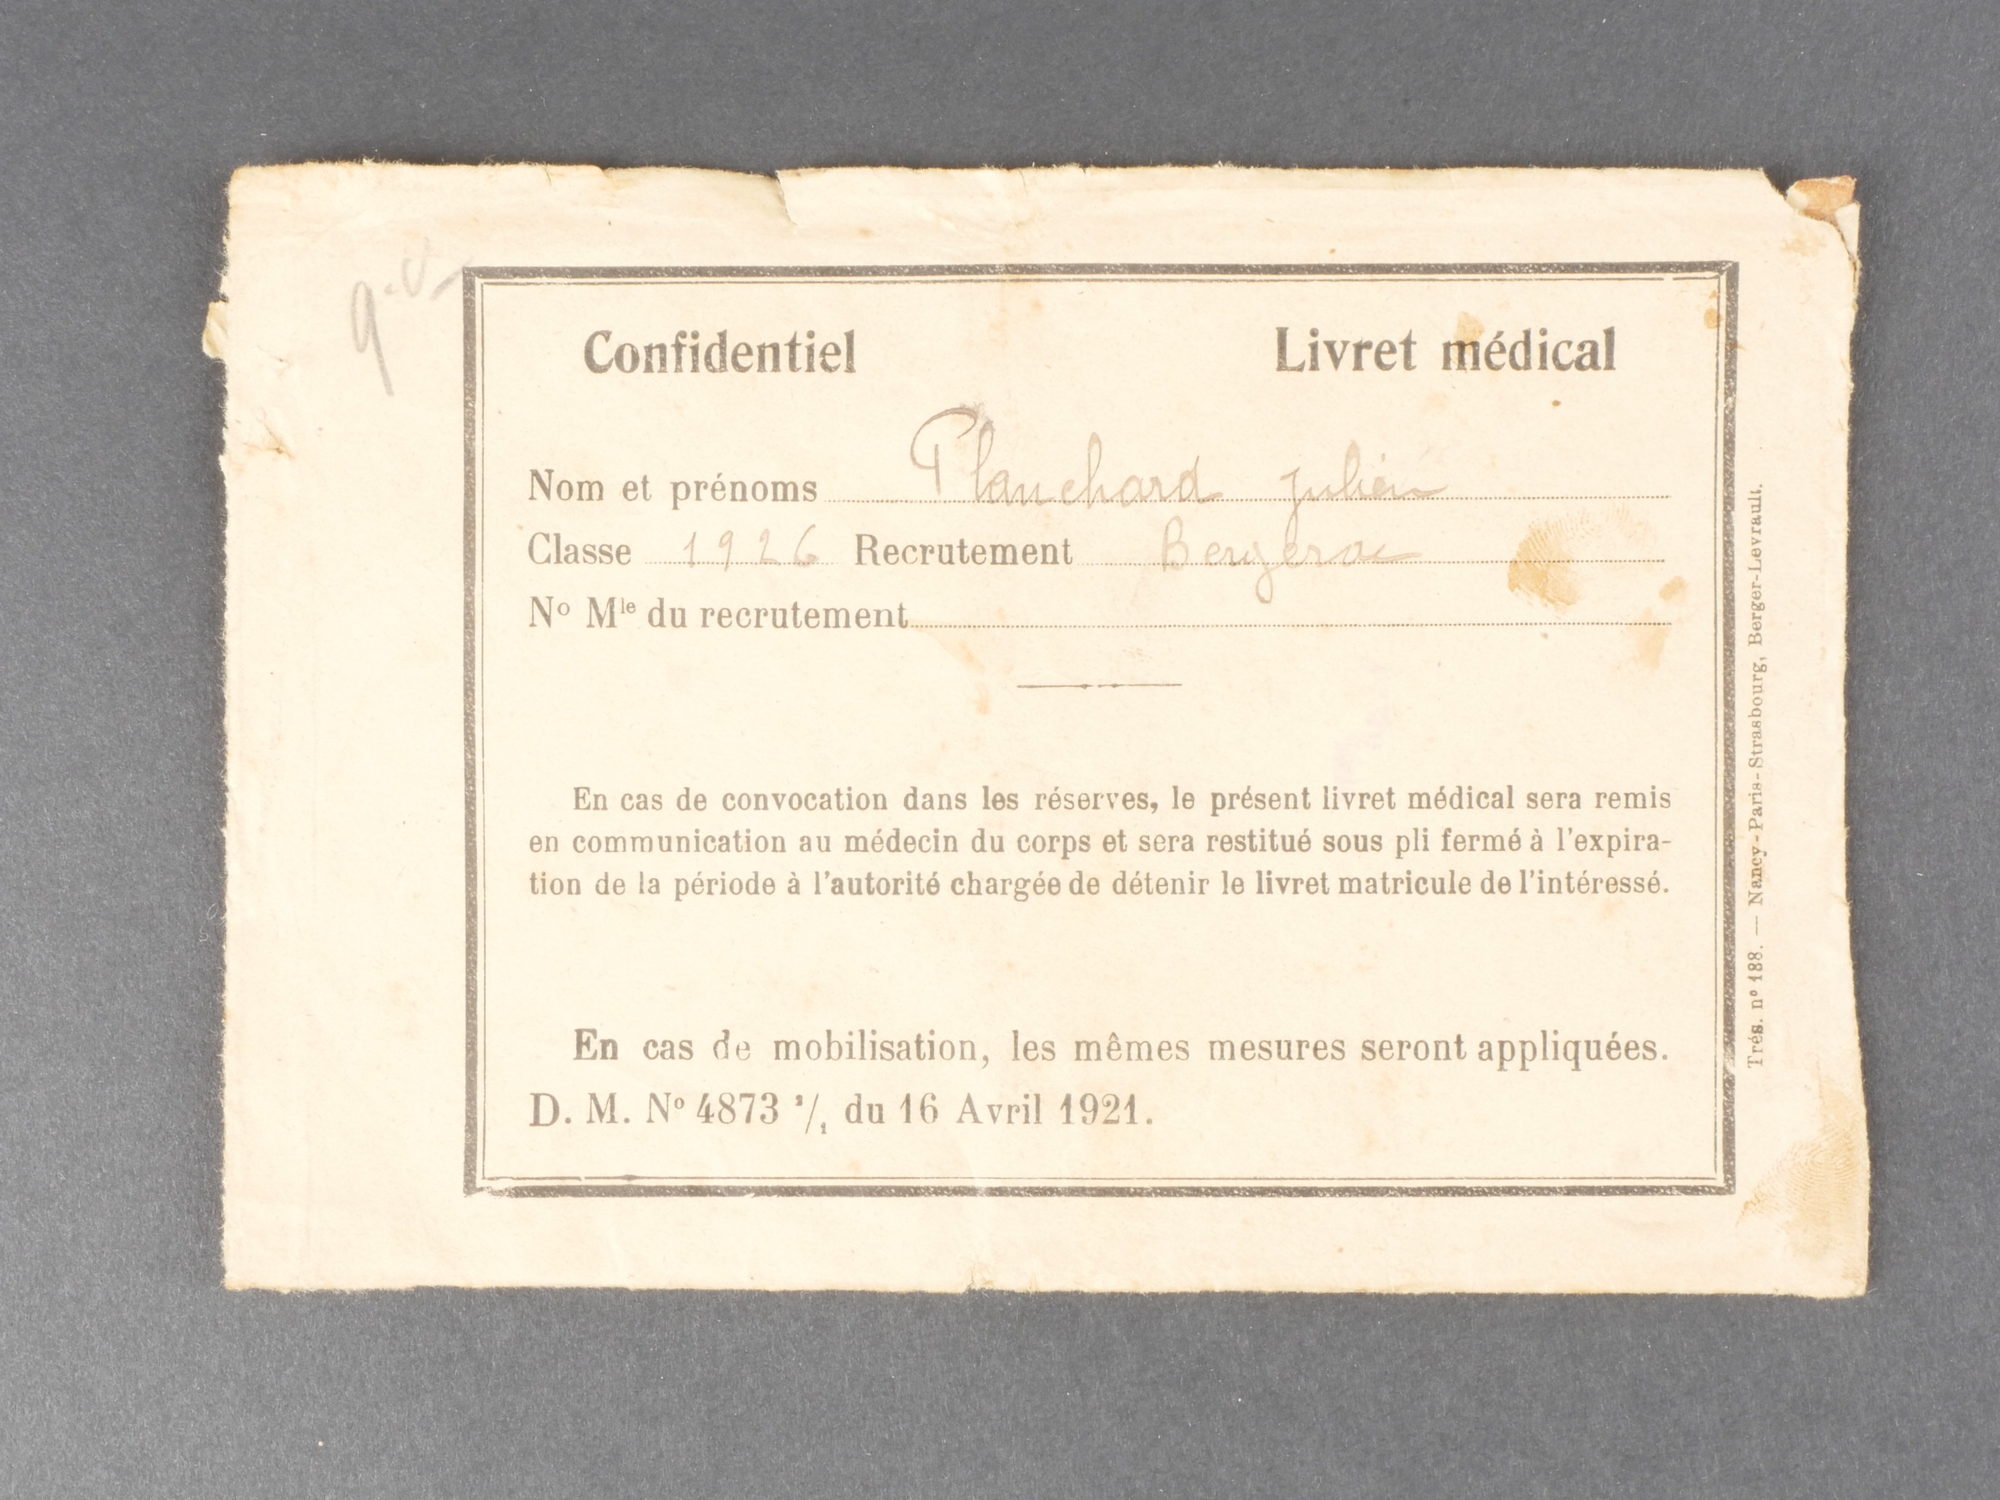 Confidentiel Livret médical
Nom et prénoms Planchard Julien
Classe 1926 Recrutement Bergerac
Nº Mle du recrutement
En cas de convocation dans les réserves, le présent livret médical sera remis
en communication au médecin du corps et sera restitué sous pli fermé à l'expira-
tion de la période à l'autorité chargée de détenir le livret matricule de l'intéressé.
En cas de mobilisation, les mêmes mesures seront appliquées.
D. M. Nº 4873 ³/₁ du 16 Avril 1921.
Trés. nº 188. — Nancy-Paris-Strasbourg, Berger-Levrault.